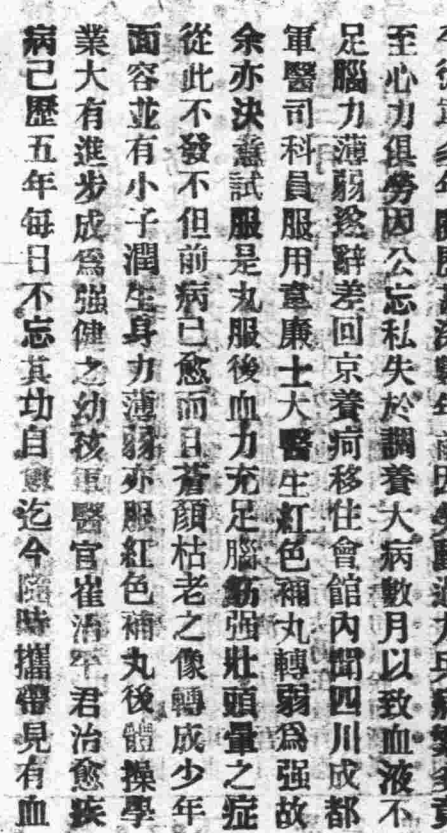 至心力俱勞因公忘私失於調養大病數月以致血液不
足腦力薄弱遂辭差回京養疴移住會館內聞四川成都
軍醫司科員服用韋廉士大醫生紅色補丸轉弱爲强故
余亦決意試服是丸服後血力充足腦筋强壯頭暈之症
從此不發不但前病已愈而且蒼顏枯老之像轉成少年
面容並有小子潤生身力薄弱亦服紅色補丸後體操學
業大有進步成爲强健之幼孩軍醫官崔治平君治愈疾
病已歷五年每日不忘其功自愈迄今隨時攜帶見有血